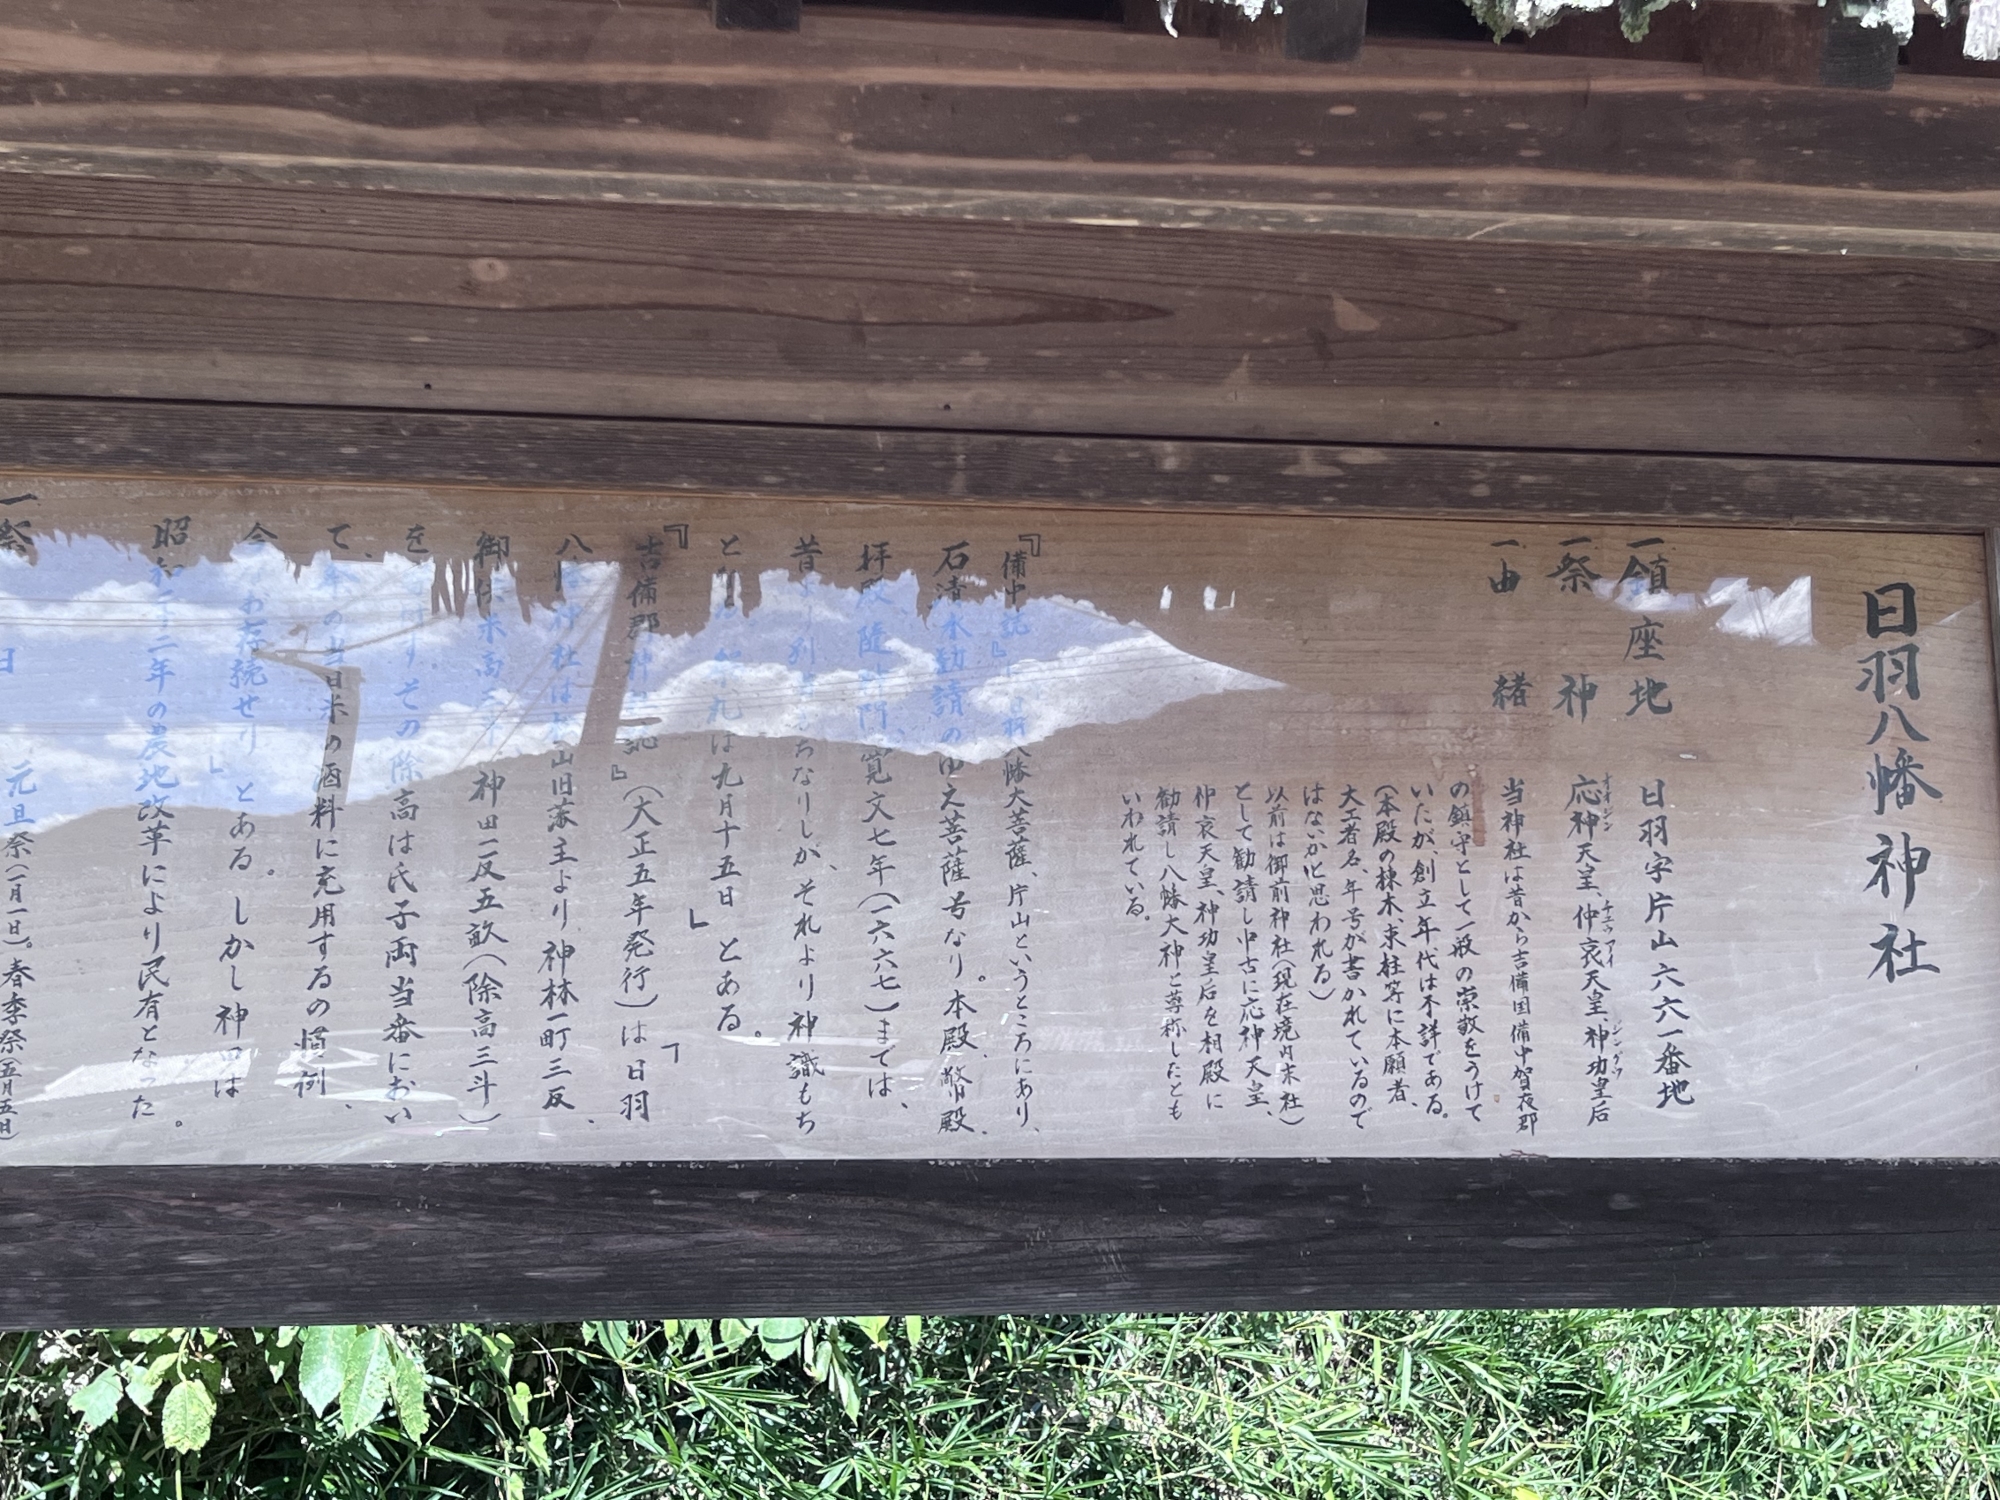 日羽八幡神社
一、鎮座地 日羽字片山六六一番地
一、祭神 応神天皇、仲哀天皇、神功皇后
オオジン チュウアイ ジングウ
一、由緒 当神社は昔から吉備国備中賀夜郡
の鎮守として一般の崇敬をうけて
いたが、創立年代は不詳である。
(本殿の棟木、束柱等に本願者、
大工者名、年号が書かれているので
はないかと思われる)
以前は御前神社(現在境内末社)
として勧請し中古に応神天皇、
仲哀天皇、神功皇后を相殿に
勧請し八幡大神と尊称したとも
いわれている。
『備中誌』に「日羽八幡大菩薩、片山というところにあり、
石清水勧請のゆえ菩薩号なり。本殿、幣殿、
拝殿、随神門、寛文七年(一六六七)までは、
昔より別当もちなりしが、それより神識もち
となる 祭礼は九月十五日」とある。
『吉備郡神社誌』(大正五年発行)は「日羽
八幡神社は 山旧藩主より、神林一町三反、
御供米高三斗、神田二反五畝(除高三斗)
を 付すその除高は氏子両当番におい
て、祭の当日米の酒料に充用するの慣例、
今 お存続せり」とある。しかし神田は
昭和二十二年の農地改革により民有となった。
一、祭日 元旦祭(一月一日)。春季祭(五月五日)